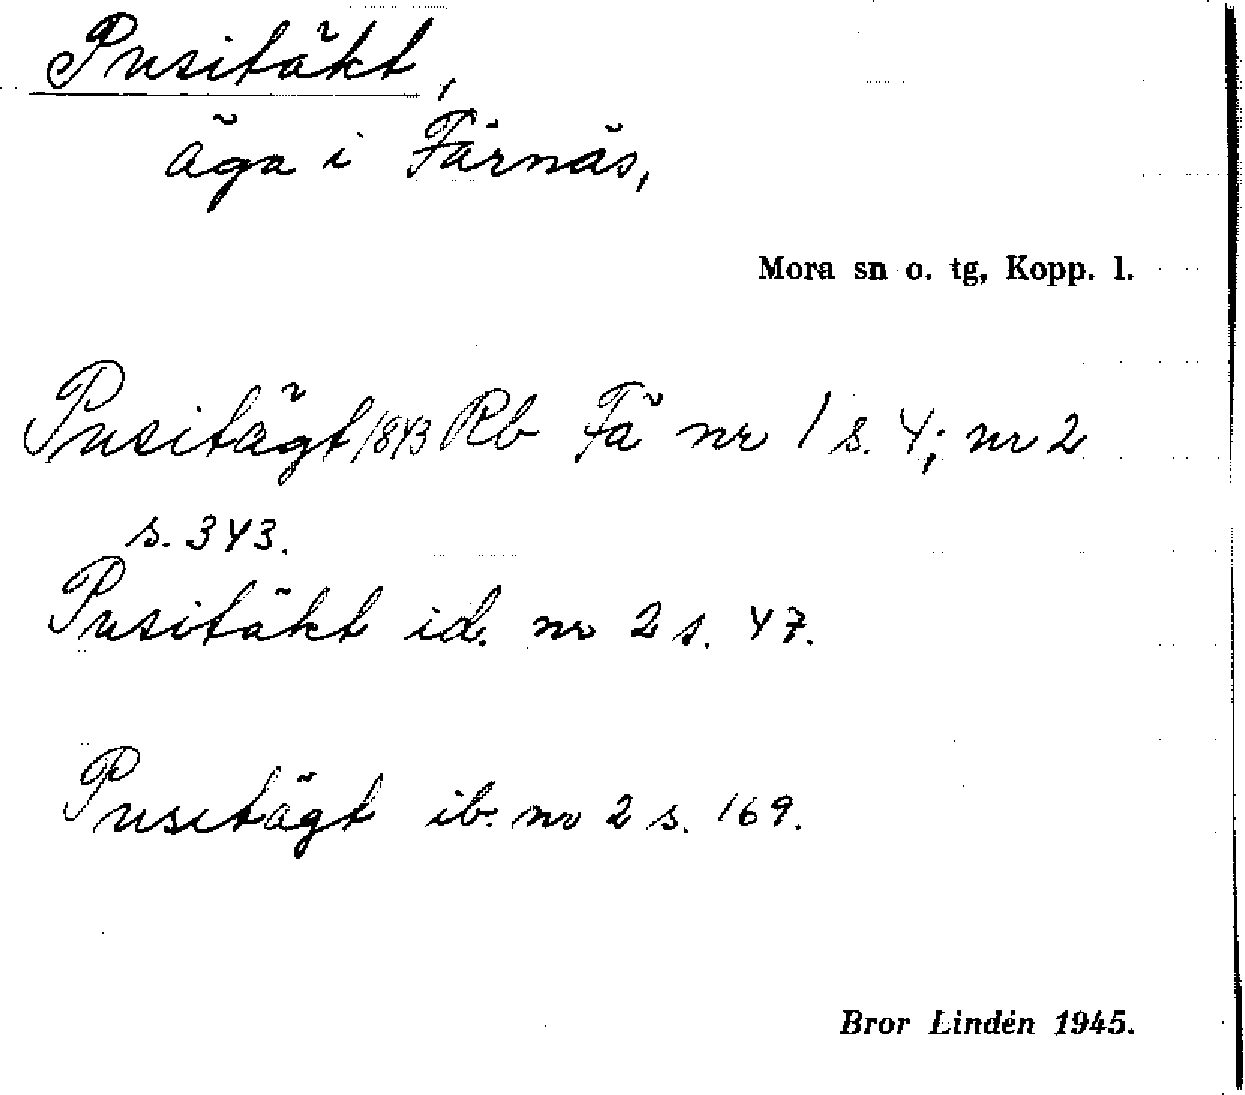 Pusitäkt,
äga i Färnäs,
Mora sn o. tg, Kopp. l.
Pusitägt 1843 Rb Fä nr 1 s. 4; nr 2
s. 343.
Pusitäkt id. nr 2 s. 47.
Pusitägt ib. nr 2 s. 169.
Bror Lindén 1945.